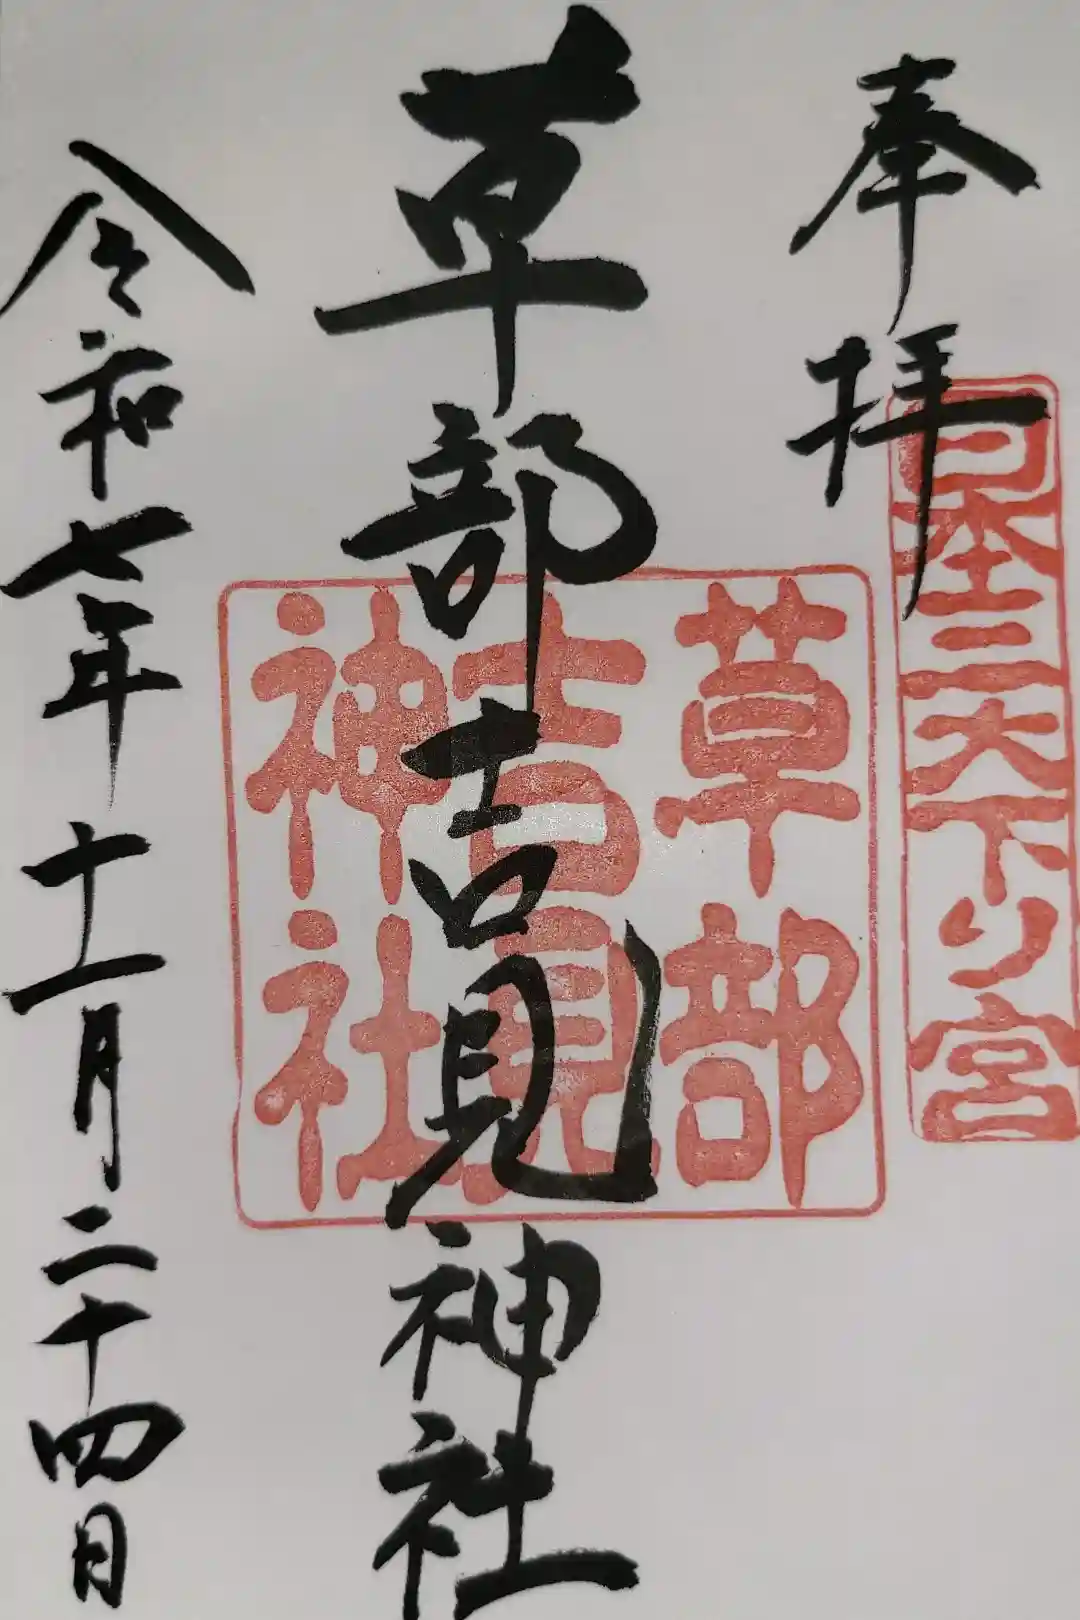 奉拝
日本三大下り宮
草部吉見神社
草部
吉見
神社
令和七年十一月二十四日